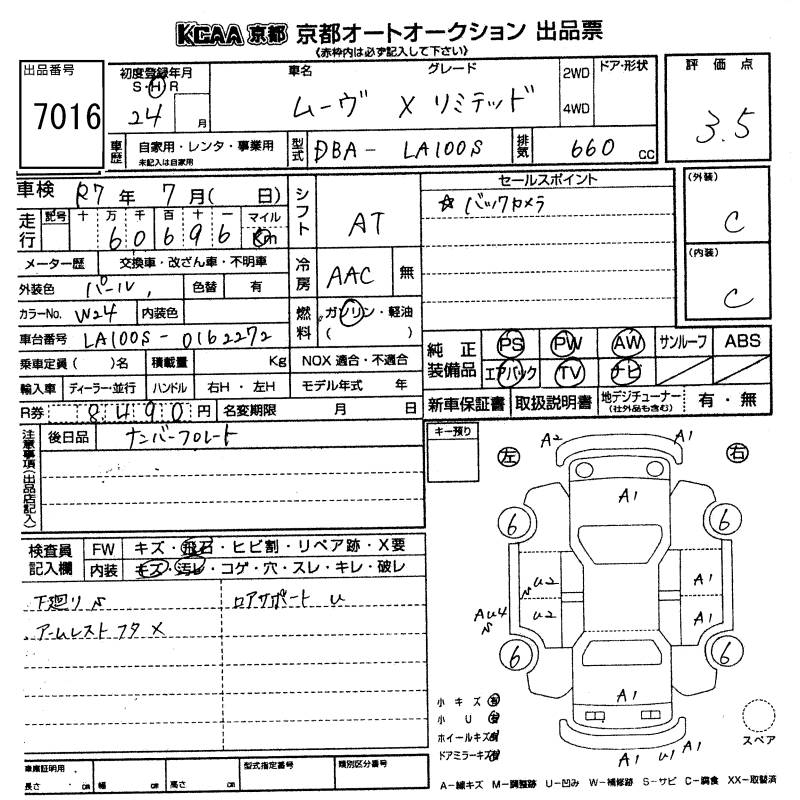 KCAA 京都 京都オートオークション 出品票
《赤枠内は必ず記入して下さい》
出品番号
7016
初度登録年月
S・H・R
24 月
車名 グレード
ムーヴ X リミテッド
2WD
4WD
ドア・形状
評価点
3.5
車歴 自家用・レンタ・事業用
未記入は自家用
型式 DBA- LA100S
排気 660 cc
車検 R7年 7月( 日)
シフト AT
セールスポイント
☆ バックカメラ
(外装)
C
(内装)
C
走行 記号 十 万 千 百 十 一 マイル
6 0 6 9 6 Km
メーター歴 交換車・改ざん車・不明車
冷房 AAC 無
外装色 パール 色替 有
カラーNo. W24 内装色
燃料 ガソリン・軽油
( )
車台番号 LA100S-0162272
乗車定員( )名 積載量 Kg NOX 適合・不適合
輸入車 ディーラー・並行 ハンドル 右H・左H モデル年式 年
R券 8490円 名変期限 月 日
純正装備品 PS PW AW サンルーフ ABS
エアバック TV ナビ
新車保証書 取扱説明書 地デジチューナー(社外品も含む) 有・無
注意事項(出品店記入)
後日品 ナンバープレート
キー預り
左 右
A2 A1
A1
6 6
U2 A1
AU4 U2 A1
6 6
A1
A1 U1 A1
検査員記入欄 FW キズ・飛石・ヒビ割・リペア跡・X要
内装 キズ・汚レ・コゲ・穴・スレ・キレ・破レ
下廻り S ロアサポート U
アームレスト フタ X
小キズ 有
小U 有
ホイールキズ
ドアミラーキズ
スペア
車庫証明用
長さ cm 幅 cm 高さ cm
型式指定番号 類別区分番号
A-線キズ M-調整跡 U-凹み W-補修跡 S-サビ C-腐食 XX-取替済